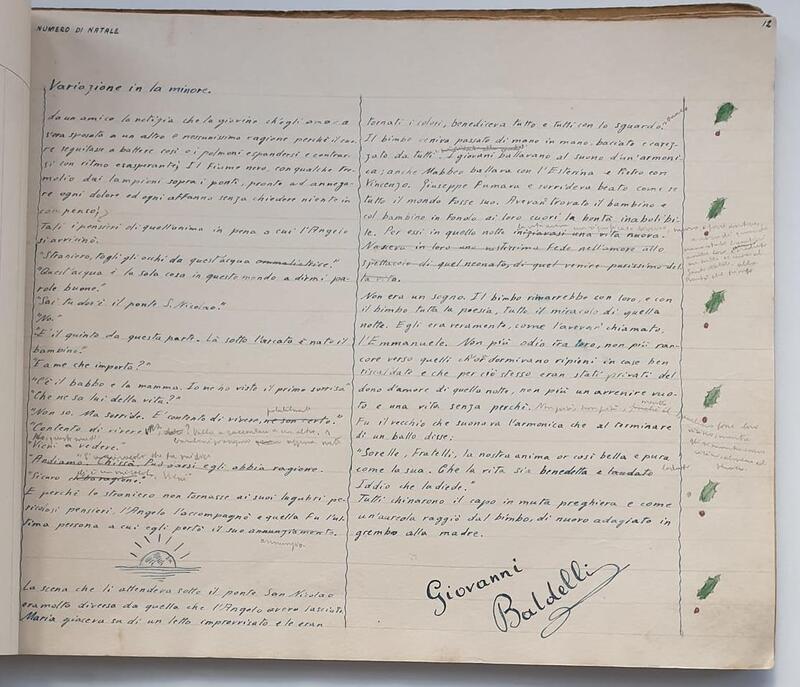 NUMERO DI NATALE
12
Variazione in la minore.
da un amico la notizia che la giovine ch'egli amava
s'era sposata a un altro e nessunissima ragione perchè il cuo
re seguitasse a battere così e i polmoni espandersi e contrar
si con ritmo esasperante; Il fiume nero, con qualche tre
molio dai lampioni sopra i ponti, pronto ad annega
re ogni dolore ed ogni affanno senza chiedere niente in
compenso;
Tali i pensieri di quell'anima in pena a cui l'Angelo
si avvicinò.
"Straniero, togli gli occhi da quest'acqua ammaliatrice."
"Quest'acqua è la sola cosa in questo mondo a dirmi pa-
role buone."
"Sai tu dov'è il ponte S. Nicolao."
"No."
"E' il quinto da questa parte. Là sotto l'arcata è nato il
bambino."
"E a me che importa?"
"C'è il babbo e la mamma. Io ne ho visto il primo sorriso"
"Che ne sa lui della vita?"
"Non so. Ma sorride. E' contento di vivere, ne son certo."
"Contento di vivere
"Vieni a vedere."
"Andiamo. Chissà. Può darsi egli abbia ragione.
"Sicuro ch'ha ragione."
E perchè lo straniero non tornasse ai suoi lugubri pe-
ricolosi pensieri, l'Angelo l'accompagnò e quella fu l'ul-
tima persona a cui egli portò il suo annunziamento.
annunzio
La scena che li attendeva sotto il ponte San Nicolao
era molto diversa da quella che l'Angelo aveva lasciato
Maria giaceva su di un letto improvvisato e le eran
tornati i colori, benediceva tutto e tutti con lo sguardo.
Il bimbo veniva passato di mano in mano, baciato e carez-
zato da tutti. I giovani ballavano al suono d'un'armoni
ca; anche Mabbeo ballava con l'Esterina e Pietro con
Vincenzo. Giuseppe fumava e sorrideva beato come se
tutto il mondo fosse suo. Avevan trovato il bambino e
col bambino in fondo ai loro cuori la bontà inabolibi-
le. Per essi in quella notte iniziavasi una vita nuova.
Nasceva in loro una vastissima fede nell'amore allo
spettacolo di quel neonato, di quel venire purissimo del
la vita.
Non era un sogno. Il bimbo rimarrebbe con loro, e con
il bimbo tutta la poesia, tutto il miracolo di quella
notte. Egli era veramente, come l'avevan chiamato,
l'Emmanuele. Non più odio tra loro, non più ran-
core verso quelli ch'or dormivano ripieni in case ben
riscaldate e che per ciò stesso eran stati privati del
dono d'amore di quella notte, non più un avvenire vuo-
to e una vita senza perchè.
Fu il vecchio che suonava l'armonica che al terminare
di un ballo disse:
"Sorelle, Fratelli, la nostra anima or così bella e pura
come la sua. Che la vita sia benedetta e laudato
Iddio che la diede."
Tutti chinarono il capo in muta preghiera e come
un'aureola raggiò dal bimbo, di nuovo adagiato in
grembo alla madre.
Giovanni
Baldelli